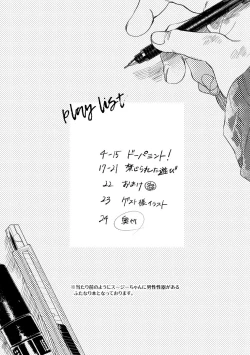 play list
4-15 ドーパミント!
17-21 禁じられた遊び
22 おまけ
23 ゲスト様イラスト
24 奥付
※当たり前のようにスージーちゃんに男性性器がある
ふたなり本となっております。